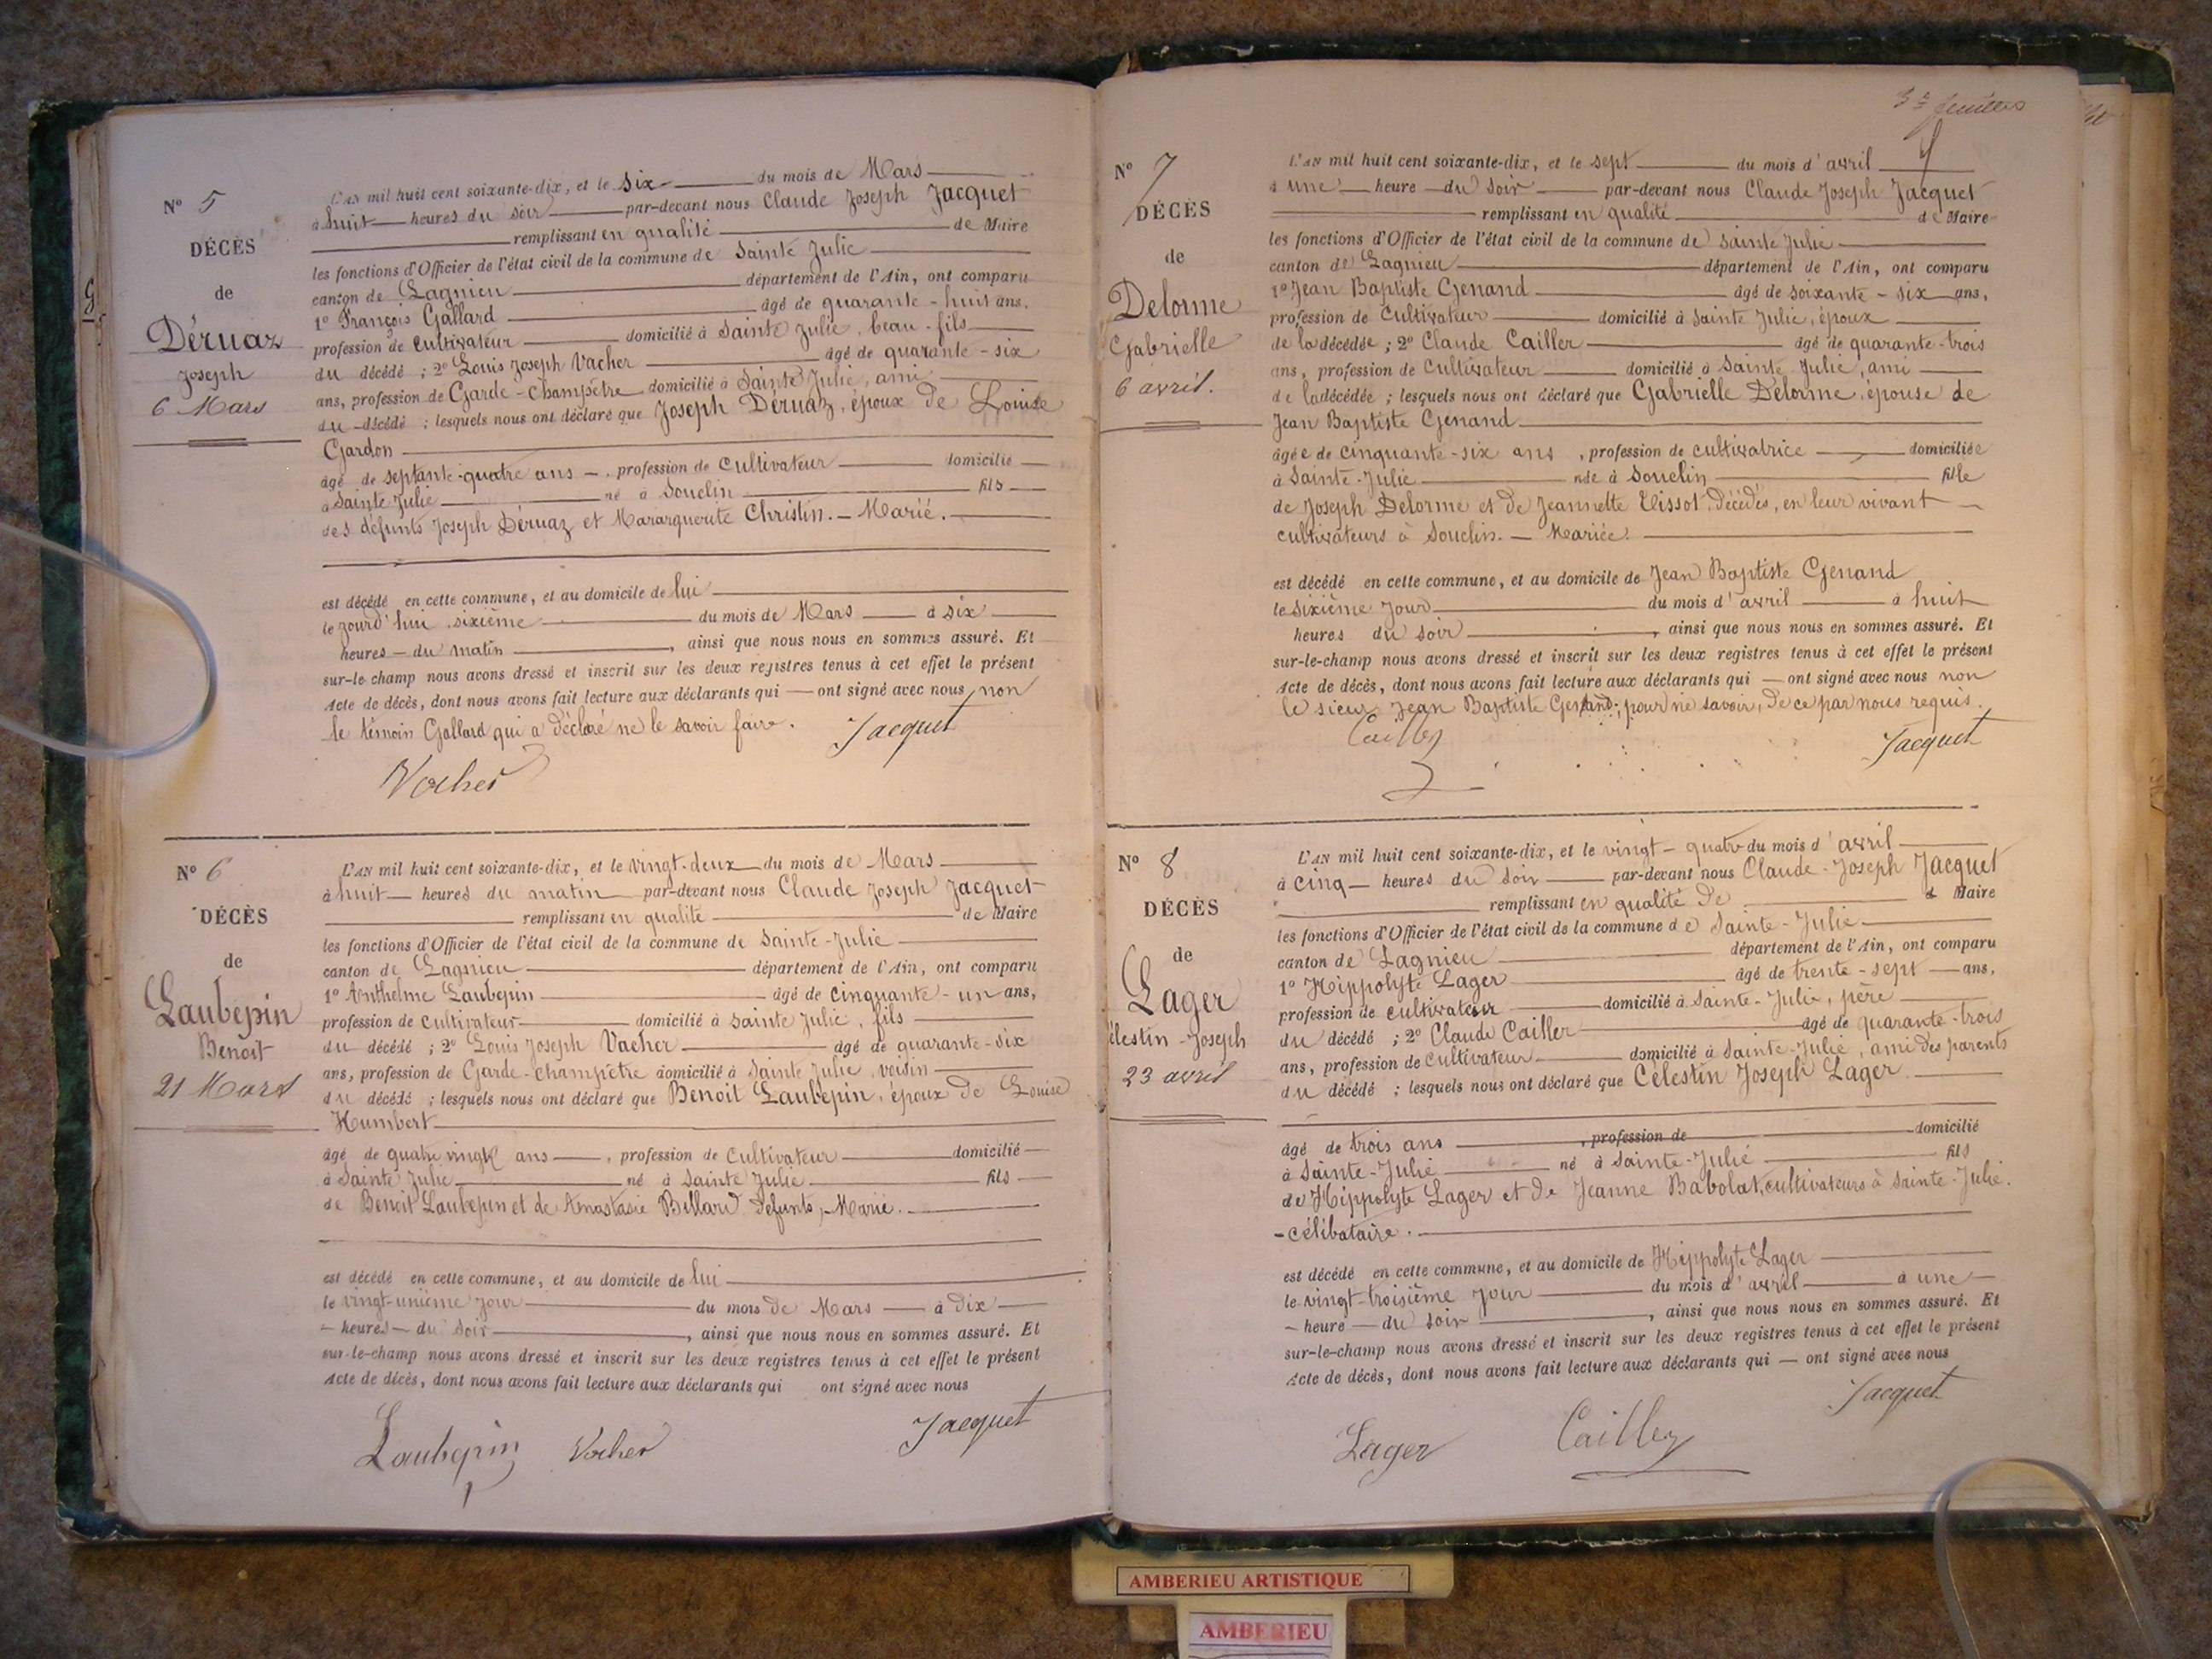 Nº 5
DÉCÈS
de
Déruaz
Joseph
6 Mars
L'AN mil huit cent soixante-dix, et le six du mois de Mars
à huit heures du soir par-devant nous Claude Joseph Jacquet
remplissant en qualité de Maire
les fonctions d'Officier de l'état civil de la commune de Sainte Julie
canton de Lagnieu département de l'Ain, ont comparu
1º François Gallard âgé de quarante-huit ans,
profession de Cultivateur domicilié à Sainte Julie, beau-fils
du décédé ; 2º Louis Joseph Vacher âgé de quarante-six
ans, profession de Garde-Champêtre domicilié à Sainte Julie, ami
du décédé ; lesquels nous ont déclaré que Joseph Déruaz, époux de Louise
Gardon
âgé de septante-quatre ans, profession de Cultivateur domicilié
à Sainte-Julie né à Souclin fils
des défunts Joseph Déruaz et Mararguerite Christin. - Marié.
est décédé en cette commune, et au domicile de lui
le jourd'hui sixième du mois de Mars à six
heures du matin, ainsi que nous nous en sommes assuré. Et
sur-le-champ nous avons dressé et inscrit sur les deux registres tenus à cet effet le présent
Acte de décès, dont nous avons fait lecture aux déclarants qui ont signé avec nous, non
le témoin Gallard qui a déclaré ne le savoir faire. Jacquet
Vacher
Nº 6
DÉCÈS
de
Laubepin
Benoit
21 Mars
L'AN mil huit cent soixante-dix, et le vingt-deux du mois de Mars
à huit heures du matin par-devant nous Claude Joseph Jacquet
remplissant en qualité de Maire
les fonctions d'Officier de l'état civil de la commune de Sainte-Julie
canton de Lagnieu département de l'Ain, ont comparu
1º Anthelme Laubepin âgé de cinquante-un ans,
profession de cultivateur domicilié à Sainte Julie, fils
du décédé ; 2º Louis Joseph Vacher âgé de quarante-six
ans, profession de Garde-champêtre domicilié à Sainte Julie, voisin
du décédé ; lesquels nous ont déclaré que Benoit Laubepin, époux de Louise
Humbert
âgé de quatre vingt ans, profession de Cultivateur domicilié
à Sainte Julie né à Sainte Julie fils
de Benoit Laubepin et de Anastasie Billard défunts, Marié.
est décédé en cette commune, et au domicile de lui
le vingt-unième jour du mois de Mars à dix
heures du soir, ainsi que nous nous en sommes assuré. Et
sur-le-champ nous avons dressé et inscrit sur les deux registres tenus à cet effet le présent
Acte de décès, dont nous avons fait lecture aux déclarants qui ont signé avec nous
Jacquet
Laubepin Vacher
3e feuillet
Nº 7
DÉCÈS
de
Delorme
Gabrielle
6 avril.
L'AN mil huit cent soixante-dix, et le sept du mois d'avril
à une heure du soir par-devant nous Claude Joseph Jacquet
remplissant en qualité de Maire
les fonctions d'Officier de l'état civil de la commune de Sainte Julie
canton de Lagnieu département de l'Ain, ont comparu
1º Jean Baptiste Genand âgé de soixante-six ans,
profession de Cultivateur domicilié à Sainte Julie, époux
de la décédée ; 2º Claude Cailler âgé de quarante-trois
ans, profession de Cultivateur domicilié à Sainte Julie, ami
de la décédée ; lesquels nous ont déclaré que Gabrielle Delorme, épouse de
Jean Baptiste Genand
âgée de cinquante-six ans, profession de cultivatrice domiciliée
à Sainte-Julie née à Souclin fille
de Joseph Delorme et de Jeannette Clissot, décédés, en leur vivant
cultivateurs à Souclin. - Mariée.
est décédé en cette commune, et au domicile de Jean Baptiste Genand
le sixième jour du mois d'avril à huit
heures du soir, ainsi que nous nous en sommes assuré. Et
sur-le-champ nous avons dressé et inscrit sur les deux registres tenus à cet effet le présent
Acte de décès, dont nous avons fait lecture aux déclarants qui ont signé avec nous non
le sieur Jean Baptiste Genand, pour ne savoir, de ce par nous requis.
Cailler Jacquet
Nº 8
DÉCÈS
de
Lager
élestin-Joseph
23 avril
L'AN mil huit cent soixante-dix, et le vingt-quatre du mois d'avril
à cinq heures du soir par-devant nous Claude-Joseph Jacquet
remplissant en qualité de d Maire
les fonctions d'Officier de l'état civil de la commune de Sainte-Julie
canton de Lagnieu département de l'Ain, ont comparu
1º Hippolyte Lager âgé de trente-sept ans,
profession de cultivateur domicilié à Sainte-Julie, père
du décédé ; 2º Claude Cailler âgé de quarante-trois
ans, profession de cultivateur domicilié à Sainte-Julie, ami des parents
du décédé ; lesquels nous ont déclaré que Célestin Joseph Lager
âgé de trois ans, profession de domicilié
à Sainte-Julie né à Sainte-Julie fils
de Hippolyte Lager et de Jeanne Babolat, cultivateurs à Sainte-Julie.
- célibataire.
est décédé en cette commune, et au domicile de Hippolyte Lager
le vingt-troisième jour du mois d'avril à une
heure du soir, ainsi que nous nous en sommes assuré. Et
sur-le-champ nous avons dressé et inscrit sur les deux registres tenus à cet effet le présent
Acte de décès, dont nous avons fait lecture aux déclarants qui ont signé avec nous
Jacquet
Lager Cailler
AMBERIEU ARTISTIQUE
AMBERIEU